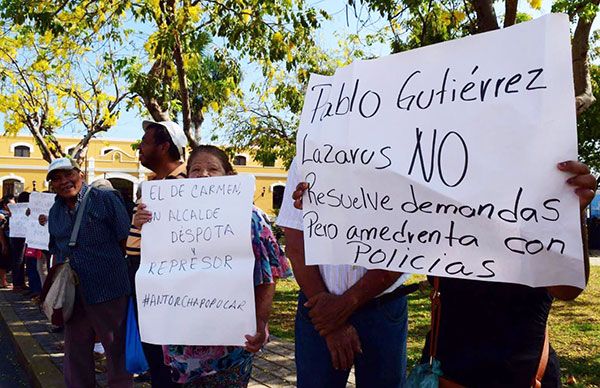 Pablo Gutiérrez
Lazarus NO
Resuelve demandas
Pero amedrenta con
Policias
DE CARMEN,
UN ALCALDE
DESPOTA
Y
REPRESOR
#ANTORCHAPOPULAR